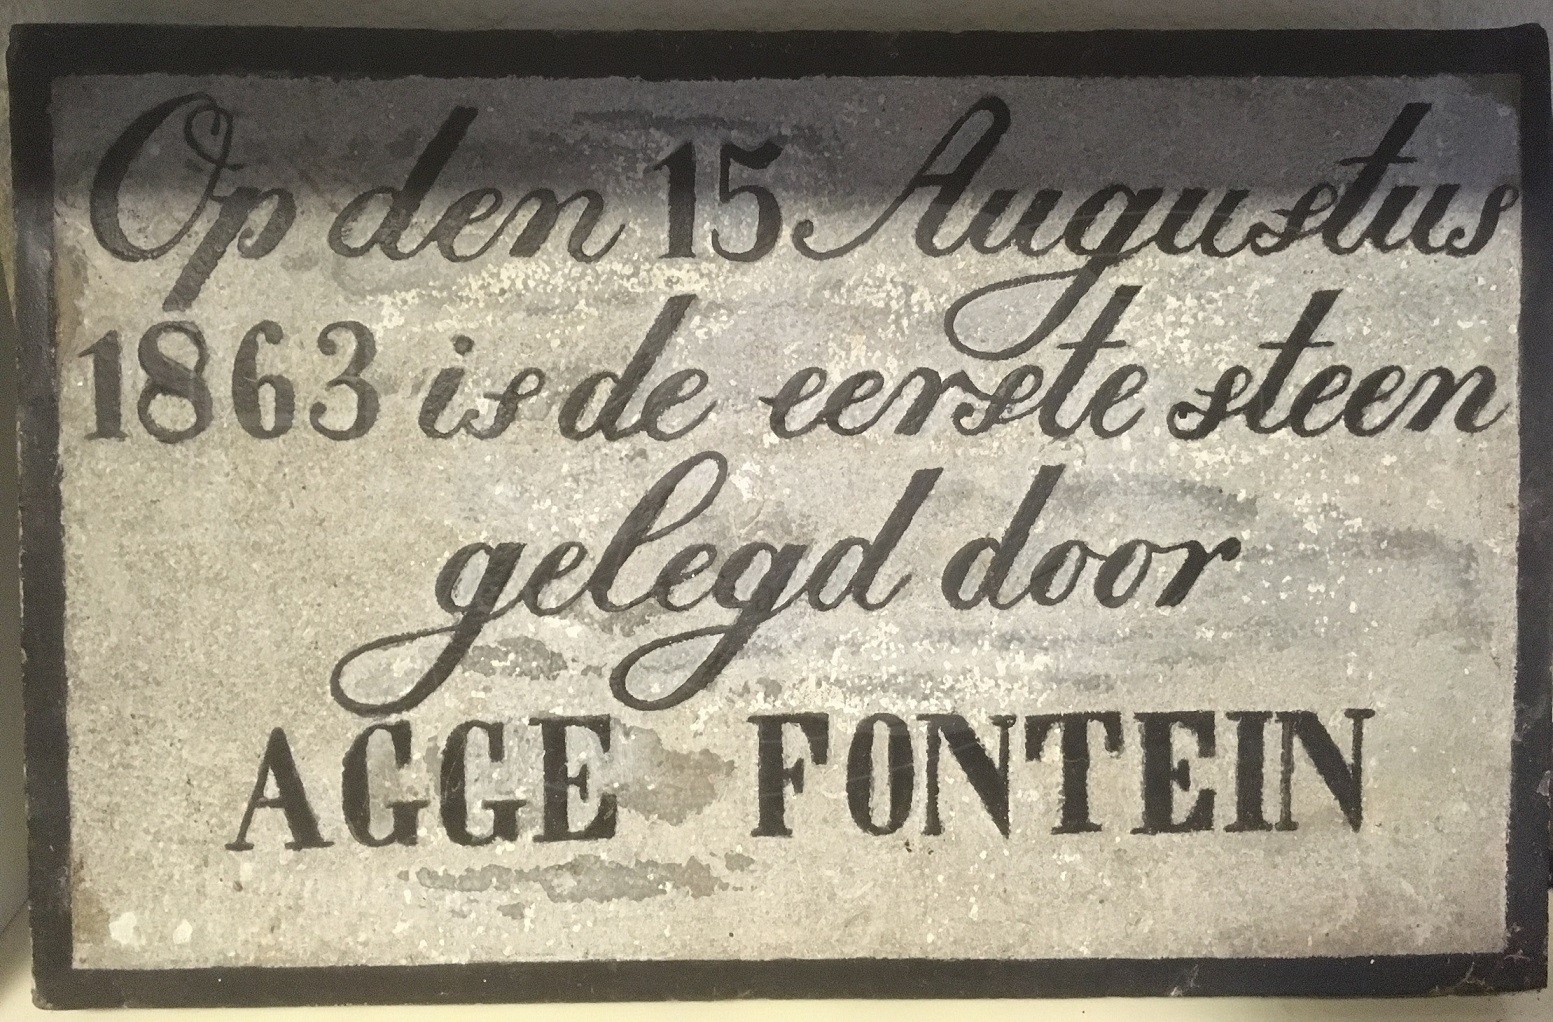 Op den 15 Augustus
1863 is de eerste steen
gelegd door
AGGE FONTEIN